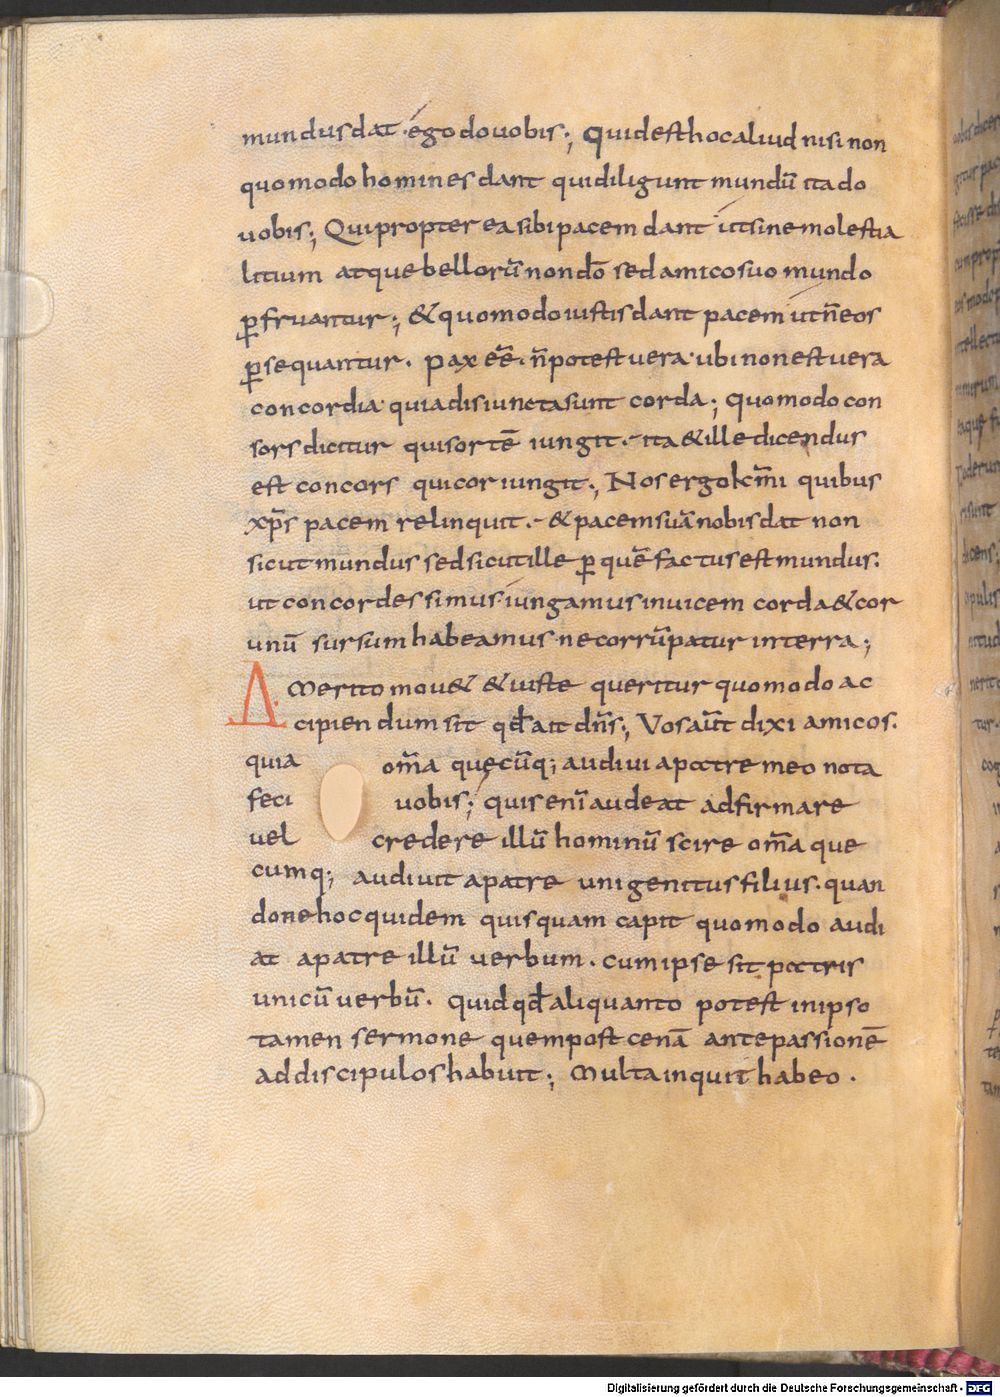 mundus dat · ego do uobis; Quid est hoc aliud nisi non
quomodo homines dant qui diligunt mundū ita do
uobis; Qui propter ea sibi pacem dant ut sine molestia
litium atque bellorū non dō sed amico suo mundo
ꝑfruantur; & quomodo iustis dant pacem ut n̄ eos
ꝑsequantur. pax eē· n̄ potest uera· ubi non est uera
concordia· quia disiuncta sunt corda; Quomodo con
sors dicitur qui sortē iungit.- ita & ille dicendus
est concors qui cor iungit; Nos ergo km̄i quibus
xp̄s pacem relinquit.- & pacem suā nobis dat non
sicut mundus sed sicut ille ꝑ quē factus est mundus.
ut concordes simus· iungamus inuicem corda & cor
unū sursum habeamus ne corrūpatur in terra;
A merito mou& & iuste queritur quomodo ac
cipiendum sit qđ ait dn̄s; Vos aūt dixi amicos.
quia om̄a quęcūq; audiui a patre meo nota
feci uobis; quis enī audeat adfirmare
uel credere illū hominū scire om̄a que
cumq; audiuit a patre unigenitus filius. quan
do ne hoc quidem quisquam capit quomodo audi
at a patre illū uerbum. cum ipse sit patris
unicū uerbū. quid qđ aliquanto potest in ipso
tamen sermone quem post cenā ante passionē
ad discipulos habuit; Multa inquit habeo .
Digitalisierung gefördert durch die Deutsche Forschungsgemeinschaft - DFG